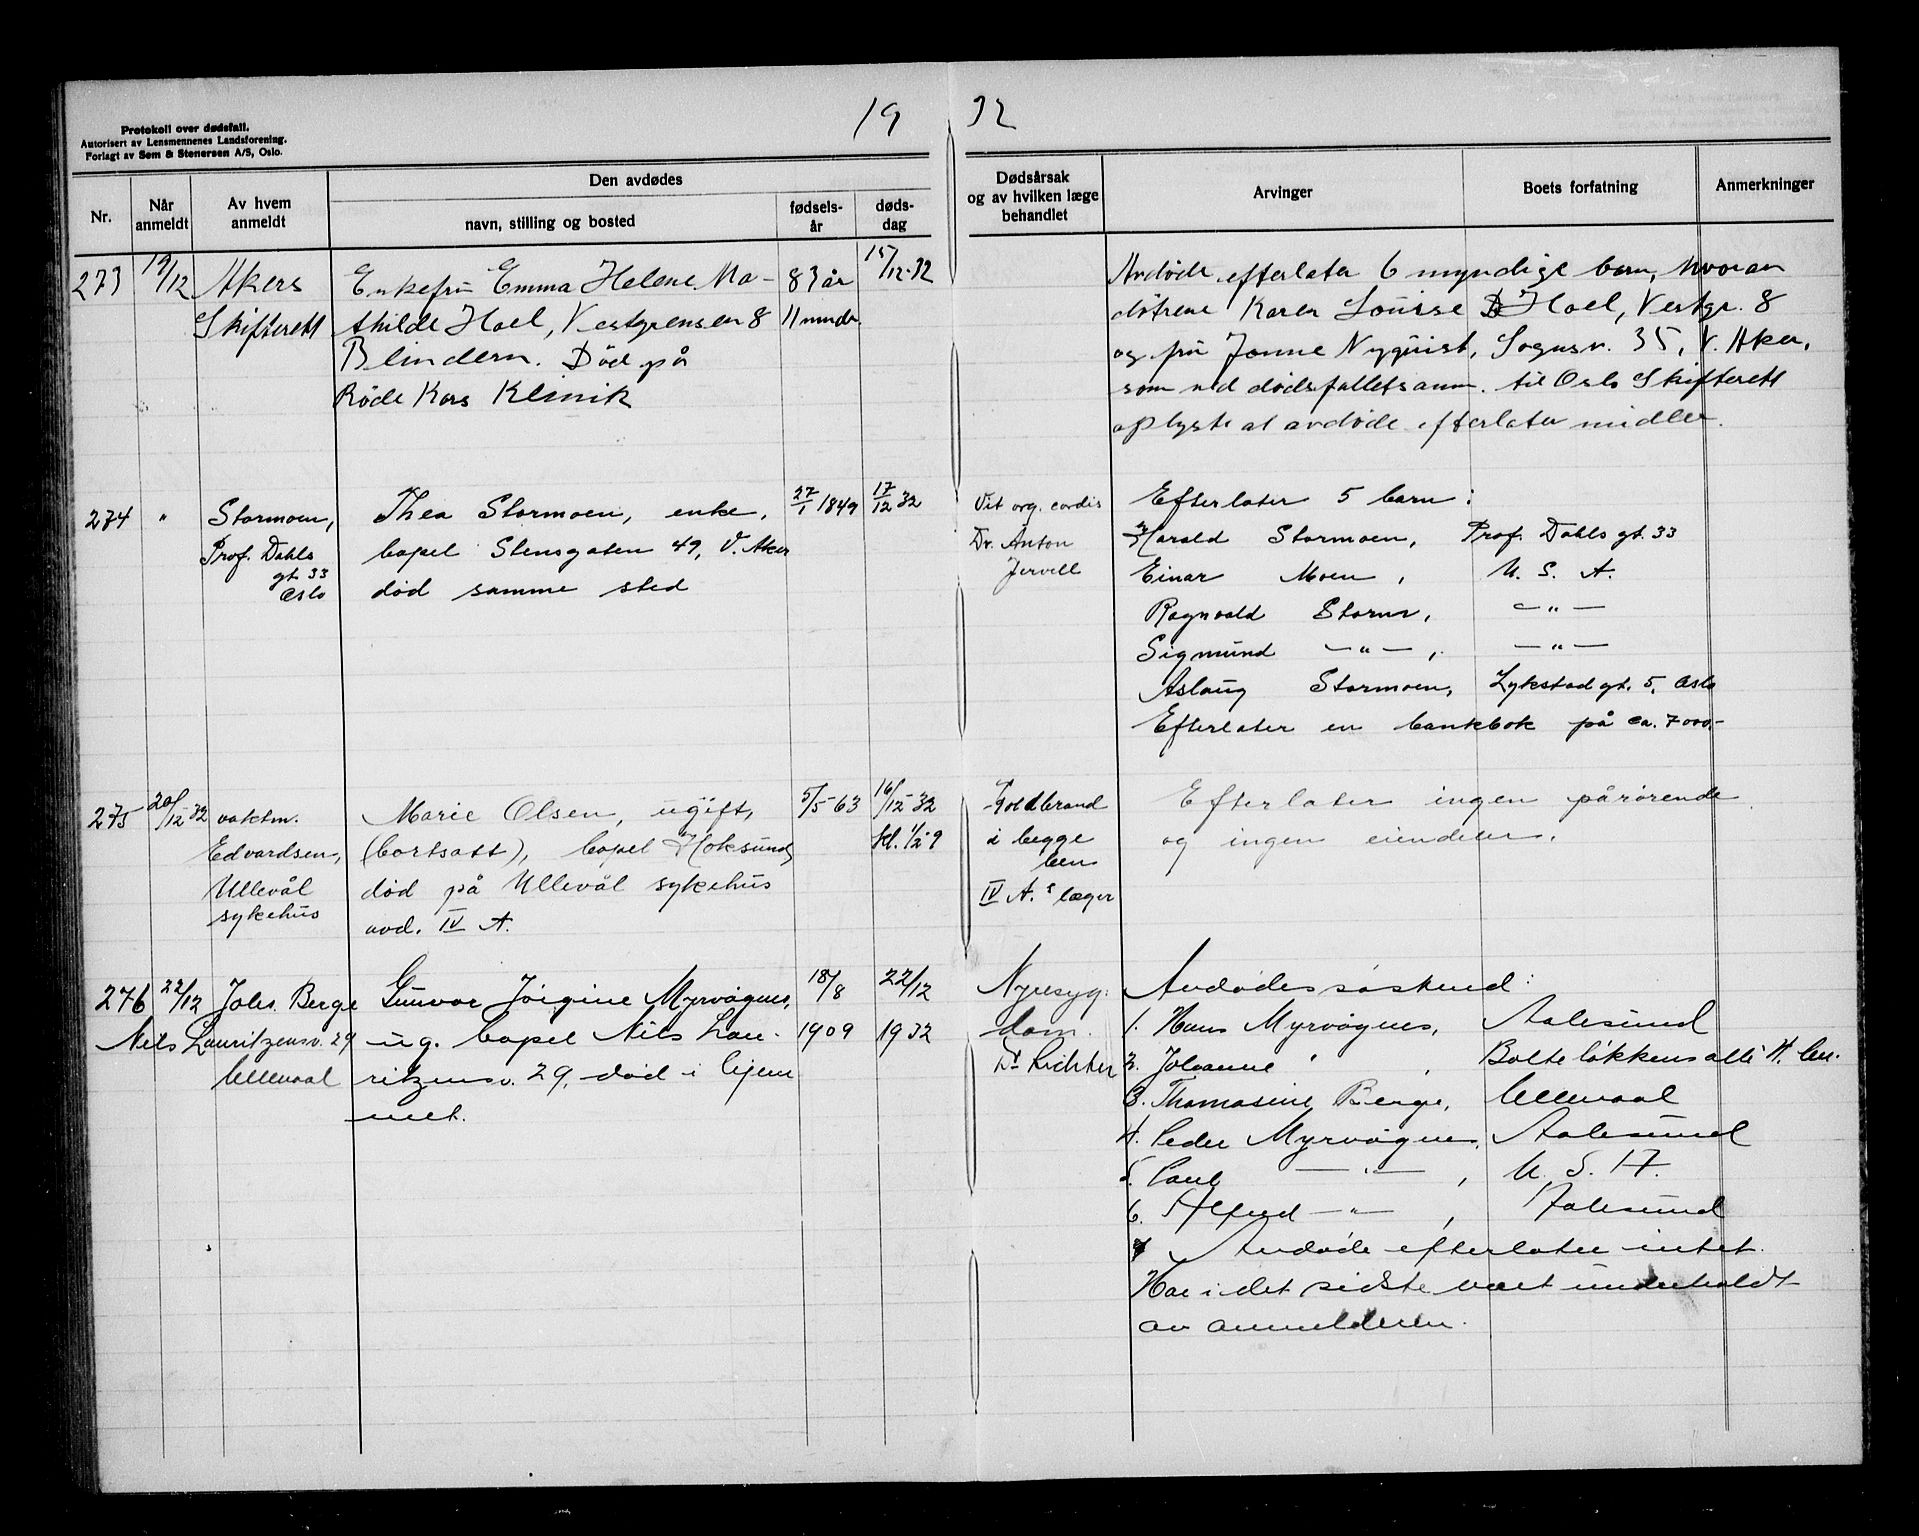 19 32
Protokoll over dødsfall.
Autorisert av Lensmennenes Landsforening.
Forlagt av Sem & Stenersen A/S, Oslo.
Nr.
Når
anmeldt
Av hvem
anmeldt
Den avdødes
navn, stilling og bosted
fødsels-
år
døds-
dag
Dødsårsak
og av hvilken læge
behandlet
Arvinger
Boets forfatning
Anmerkninger
273
19/12
Akers
Skifterett
Enkefru Emma Helene Ma-
thilde Hoel, Vestgrensen 8
Blindern. Død på
Røde Kors Klinik
83 år
11 mndr.
15/12-32
Avdøde efterlater 6 myndige barn, hvorav
døtrene Karen Louise Hoel, Vestgr. 8
og fru Jonne Nyquist, Sognsv. 35, V. Aker,
som ved dødsfallets anm. til Oslo Skifterett
oplyste at avdøde efterlater midler.
274
"
Stormoen,
Prof. Dahls
gt. 33
Oslo
Thea Stormoen, enke,
bopel Stensgaten 49, V. Aker
død samme sted
27/1 1849
17/12 32
Vit. org. cordis
Dr. Anton
Jervell
Efterlater 5 barn:
Harald Stormoen, Prof. Dahls gt. 33
Einar Moen, U. S. A.
Ragnvald Storm, — " —
Sigmund — " —, — " —
Aslaug Stormoen, Lykstad gt. 5, Oslo
Efterlater en bankbok på ca. 7000,-
275
20/12-32
vaktm.
Edvardsen,
Ullevål
sykehus
Marie Olsen, ugift,
(bortsatt), bopel Hoksund,
død på Ullevål sykehus
avd. IV A.
5/5-63
16/12-32
kl. 1/2 9
Koldbrand
i begge
ben
IV A.s læger
Efterlater ingen pårørende
og ingen eiendeler.
276
22/12
Johs. Berge
Nils Lauritzensv. 29
Ullevaal
Gunvor Jørgine Myrvågnes,
ug. bopel Nils Lau-
ritzensv. 29, død i hjem
met.
18/8
1909
22/12
1932
Nyresyg-
dom.
Dr Richter
Avdødes søskend:
1. Hans Myrvågnes, Aalesund
2. Johanne " , Bolteløkkens alle 4. b.
3. Thomasine Berge, Ullevaal
4. Peder Myrvågnes, Aalesund
5. Paul — " —, U. S. A.
6. Alfred — " —, Aalesund
Avdøde efterlater intet.
Har i det sidste vært underholdt
av anmelderen.